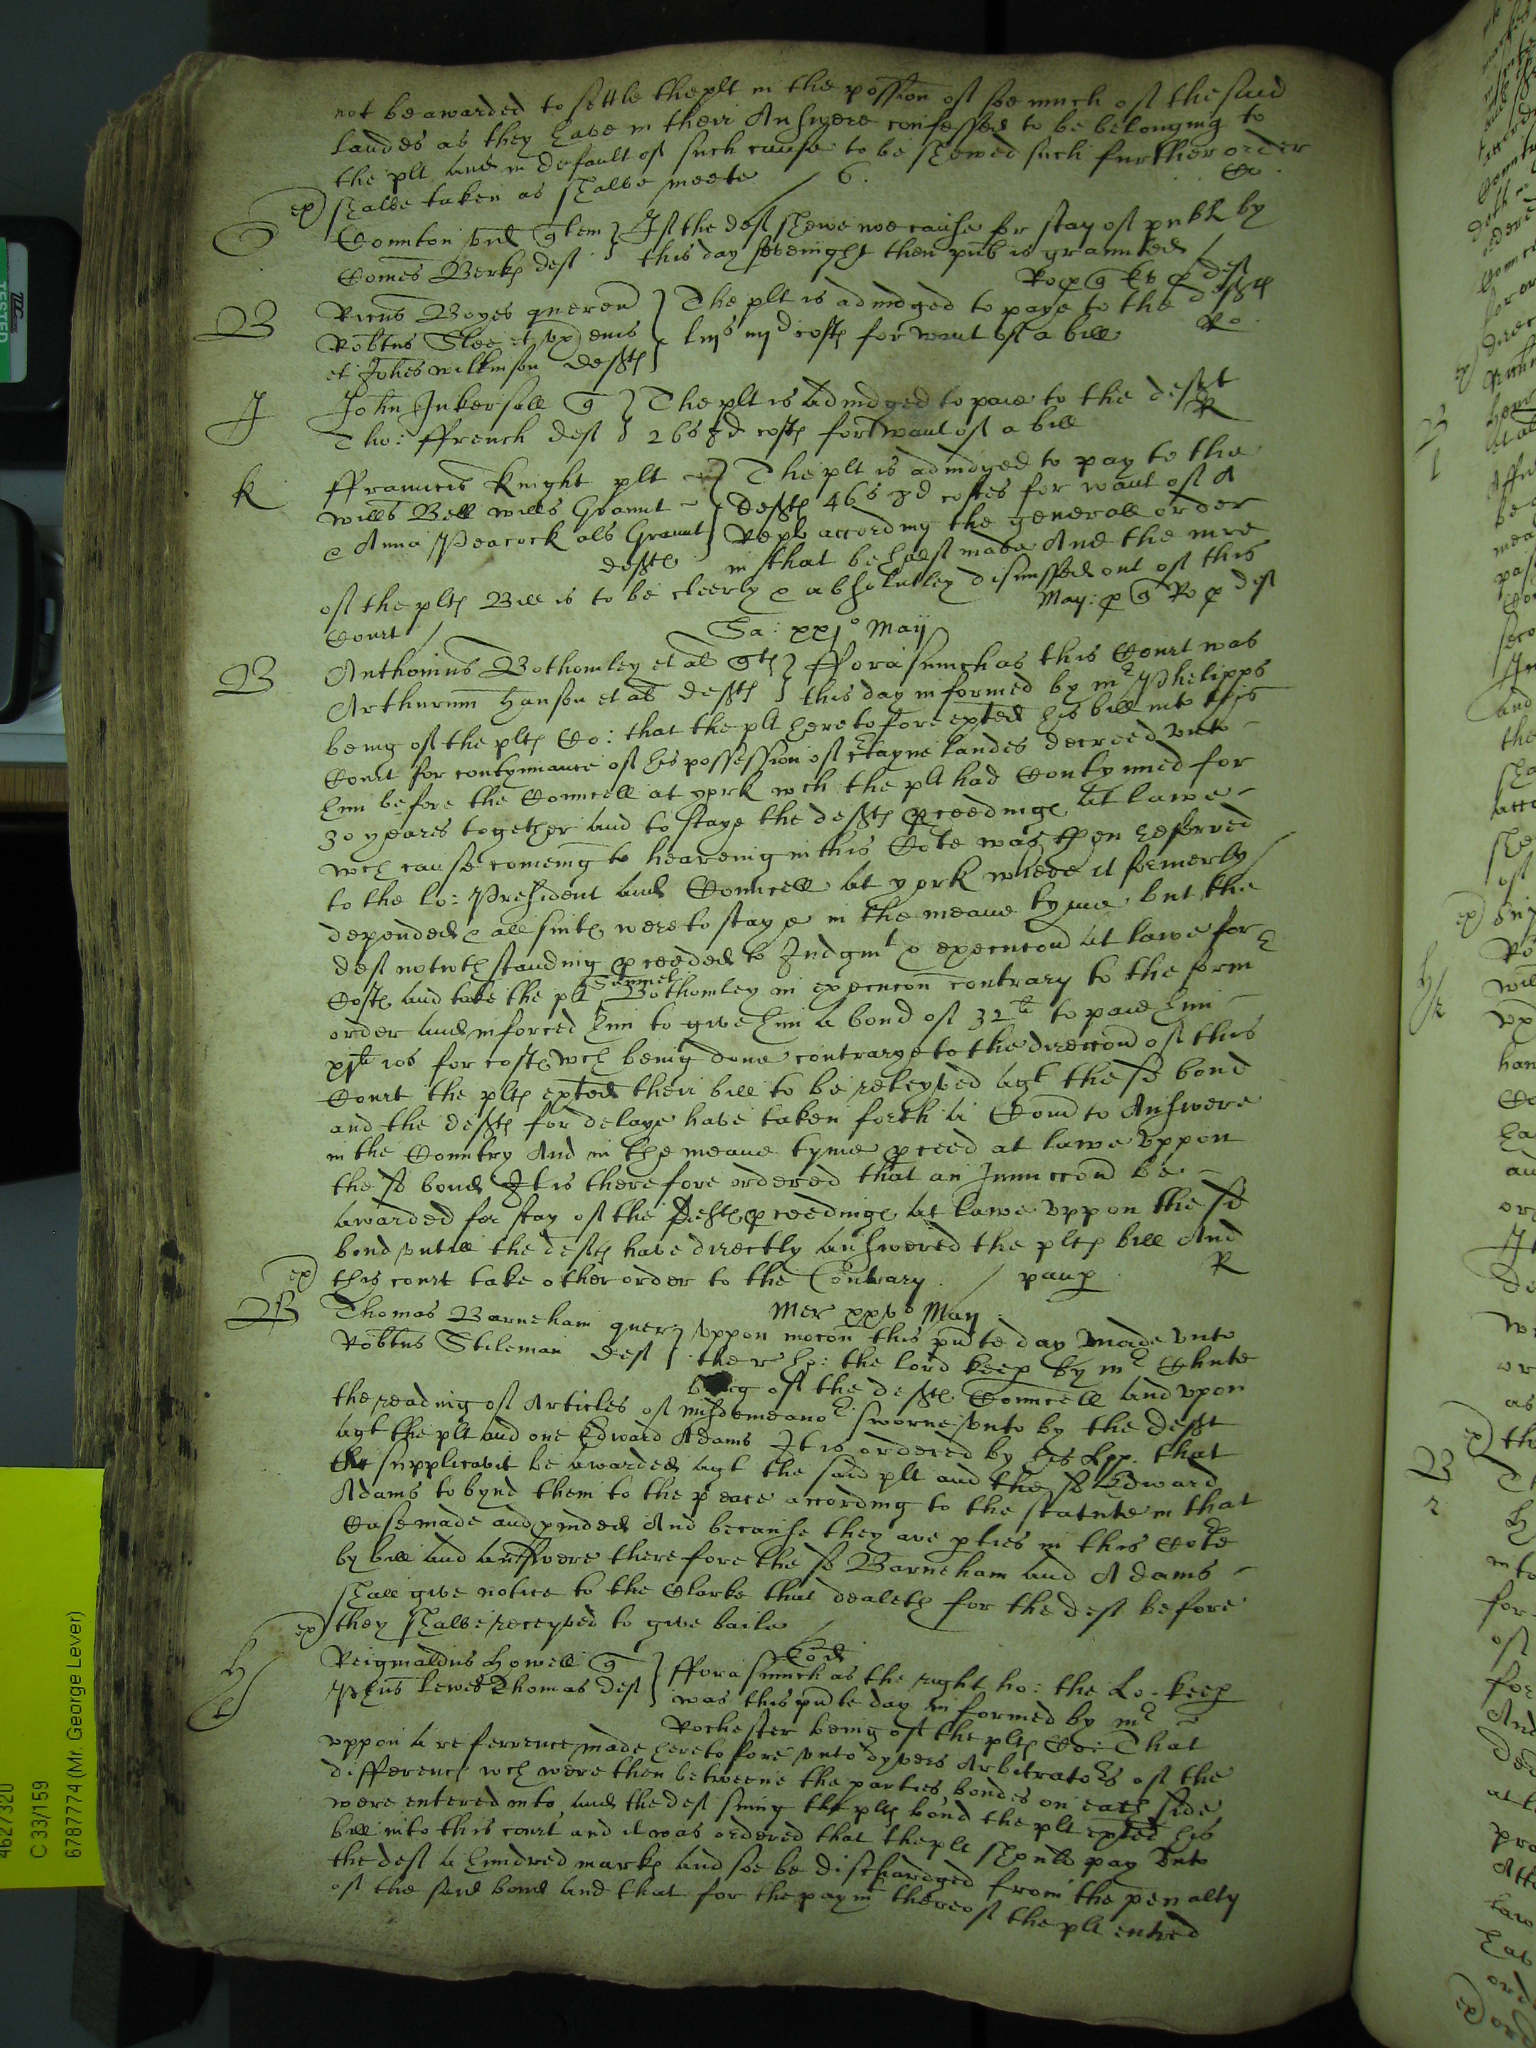 not be awarded to settle the plt in the possion of soe much of the said
landes as they have in their Answere confessed to be belonging to
the plt and in default of such cause to be shewed such further order
shalbe taken as shalbe meete / 6. Co.
ex
C Comiton quer } If the deft shewe noe cause for stay of publ by
Comes Berk deft } this day sevenight then pub is graunted /
Ro p q Ks p deft
B Ricus Boyes queren } The plt is adiudged to paye to the deftes
Robtus Slee et ux eius } liijs iiijd costes for want of a bill Ro
et Johes Wilkinson deftes }
J John Inkersall q } The plt is adiudged to paie to the deft
Tho: ffrench deft } 26s 8d costes for want of a bill R
K ffranncis Knight plt } The plt is adiudged to pay to the
Willus Bell Willus Graunt } deftes 46s 8d costes for want of A
& Anna Peacock als Graunt } Repl according the generall order
deftes in that behalf made And the mre
of the pltes Bill is to be cleerly & absolutley dismissed out of this
Court / May: p q Ro p deft
Sa: xxjo Maij
B Anthonius Bothomley et al qtes } fforasmuch as this Court was
Arthurum Hanson et al deftes } this day informed by mr Phelipps
being of the pltes Co: that the plt heretofore exhted his bill into this
Court for contynuance of his possession of ctayne landes decreed unto
him before the Councell at york wch the plt had Contynued for
30 yeares together and to staye the deftes pceedinges at lawe
wch cause comeing to heareing in this Corte was then referred
to the lo: President and Councell at york where it formerly
depended & all suites were to staye in the meane tyme but the
deft notwthstanding pceeded to Judgmt & execucon at lawe for
Costes and take the plt Samuel Bothomley in execucon contrary to the form
order and inforced him to give him a bond of 32li to paie him
xjli 10s for costes wch being done contrarye to the direccon of this
Court the pltes exhted their bill to be releyved agt the sd bond
and the deftes for delaye have taken forth a Comd to Answere
in the Country And in the meane tyme pceed at lawe uppon
the sd bond It is therefore ordered that an Iniunccon be
awarded for stay of the deftes pceedinges at lawe uppon the sd
bond untill the deftes have directly answered the pltes bill And
this court take other order to the Contrary / paup R
ex
Mer xxvo Maij
B Thomas Barneham quer } uppon mocon this pnte day made unto
Robtus Stileman deft } the r ho: the lord keep by mr Chute
being of the deftes Councell and upon
the reading of Articles of misdemeanor sworne unto by the deft
agt the plt and one Edward Adams It is ordered by his Lpp. that
the supplicavit be awarded agt the said plt and the sd Edward
Adams to bynd them to the peace according to the statute in that
Case made and pvided And because they are pties in this Corte
by bill and answere therefore the sd Barneham and Adams
shall give notice to the Clarke that dealeth for the deft before
they shalbe receyved to give baile /
ex
Eod
H Reignaldus Howell q } fforasmuch as the right ho: the Lo: keep
Lewes Thomas deft } was this pnte day informed by mr
Rochester being of the pltes Co: That
uppon a referrence made heretofore unto dyvers Arbitrators of the
differences wch were then betweene the parties bondes on each side
were entered into and the deft suing the pltes bond the plt exhted his
bill into this court and it was ordered that the plt should pay unto
the deft a hundred markes and soe be dischardged from the penalty
of the said bond and that for the paymt thereof the plt entred
4627320
C 33/159
6787774 (Mr. George Lever)
TESTED